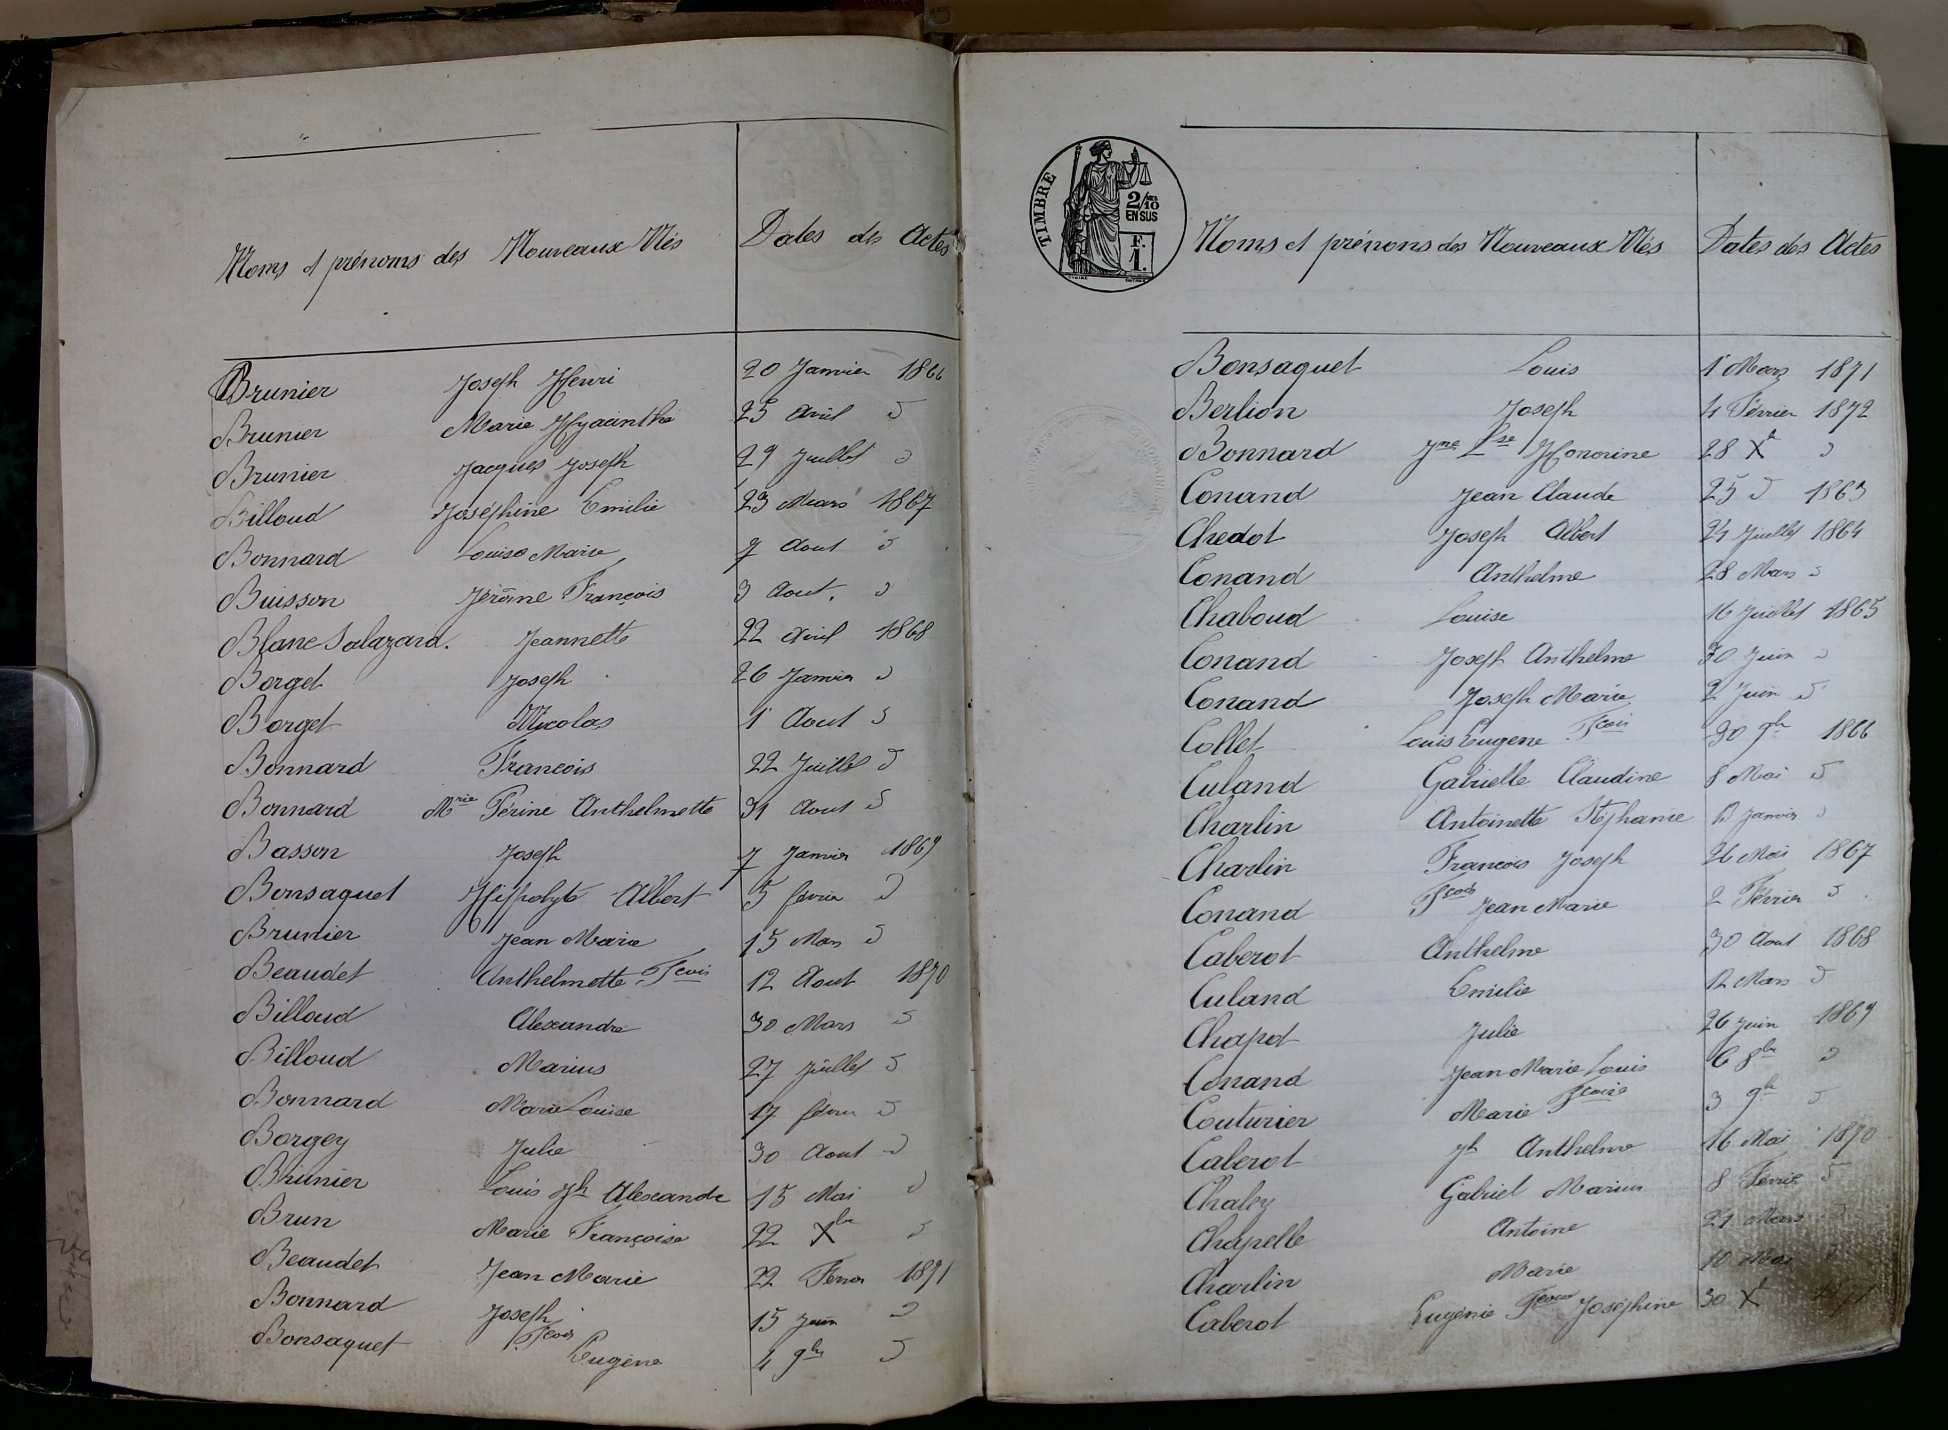 Noms et prénoms des Nouveaux Nés Dates des Actes
Brunier Joseph Henri 20 Janvier 1866
Brunier Marie Hyacinthe 25 Avril d
Brunier Jacques Joseph 29 Juillet d
Billoud Joséphine Emilie 23 Mars 1867
Bonnard Louise Marie 7 Aout d
Buisson Jérôme François 3 Aout. d
Blanc Salazard. Jeannette 22 Avril 1868
Borget Joseph 26 Janvier d
Borget Nicolas 1 Aout d
Bonnard Francois 22 Juillet d
Bonnard Mrie Périne Anthelmette 31 Aout d
Basson Joseph 7 Janvier 1869
Bonsaquet Hippolyte Albert 5 février d
Brunier Jean Marie 15 Mars d
Beaudet Anthelmette Fcois 12 Aout 1870
Billoud Alexandre 30 Mars d
Billoud Marius 27 Juillet d
Bonnard Marie Louise 17 d
Borgey Julie 30 Aout d
Brunier Louis Jh Alexandre 15 Mai d
Brun Marie Françoise 22 Xbre d
Beaudet Jean Marie 22 1871
Bonnard Joseph 15 Juin d
Bonsaquet Fcois Eugène 4 9bre d
TIMBRE
2/10
EN SUS
F.
1.
Noms et prénoms des Nouveaux Nés Dates des Actes
Bonsaquet Louis 1 Mars 1871
Berlion Joseph 4 Février 1872
Bonnard Jne Lse Honorine 28 Xe d
Conand Jean Claude 25 d 1863
Chedot Joseph Albert 24 Juillet 1864
Conand Anthelme 28 Mars d
Chaboud Louise 16 Juillet 1865
Conand Joseph Anthelme 30 Juin d
Conand Joseph Marie 2 Juin d
Collet Louis Eugene Fcois 30 9bre 1866
Culand Gabrielle Claudine 8 Mai d
Charlin Antoinette Stéphanie 13 Janvier d
Charlin Francois Joseph 26 Mai 1867
Conand Fcois Jean Marie 2 Février d
Caberot Anthelme 30 Aout 1868
Culand Emilie 12 Mars d
Chapot Julie 26 Juin 1869
Conand Jean Marie Louis 6 8bre d
Couturier Marie Fcoise 3 9bre d
Caberot Jh Anthelme 16 Mai 1870
Chaley Gabriel Marius 8 Févrie d
Chapelle Antoine 21 Mars d
Charlin Marie 10 Mai d
Caberot Eugénie Joséphine 30 X